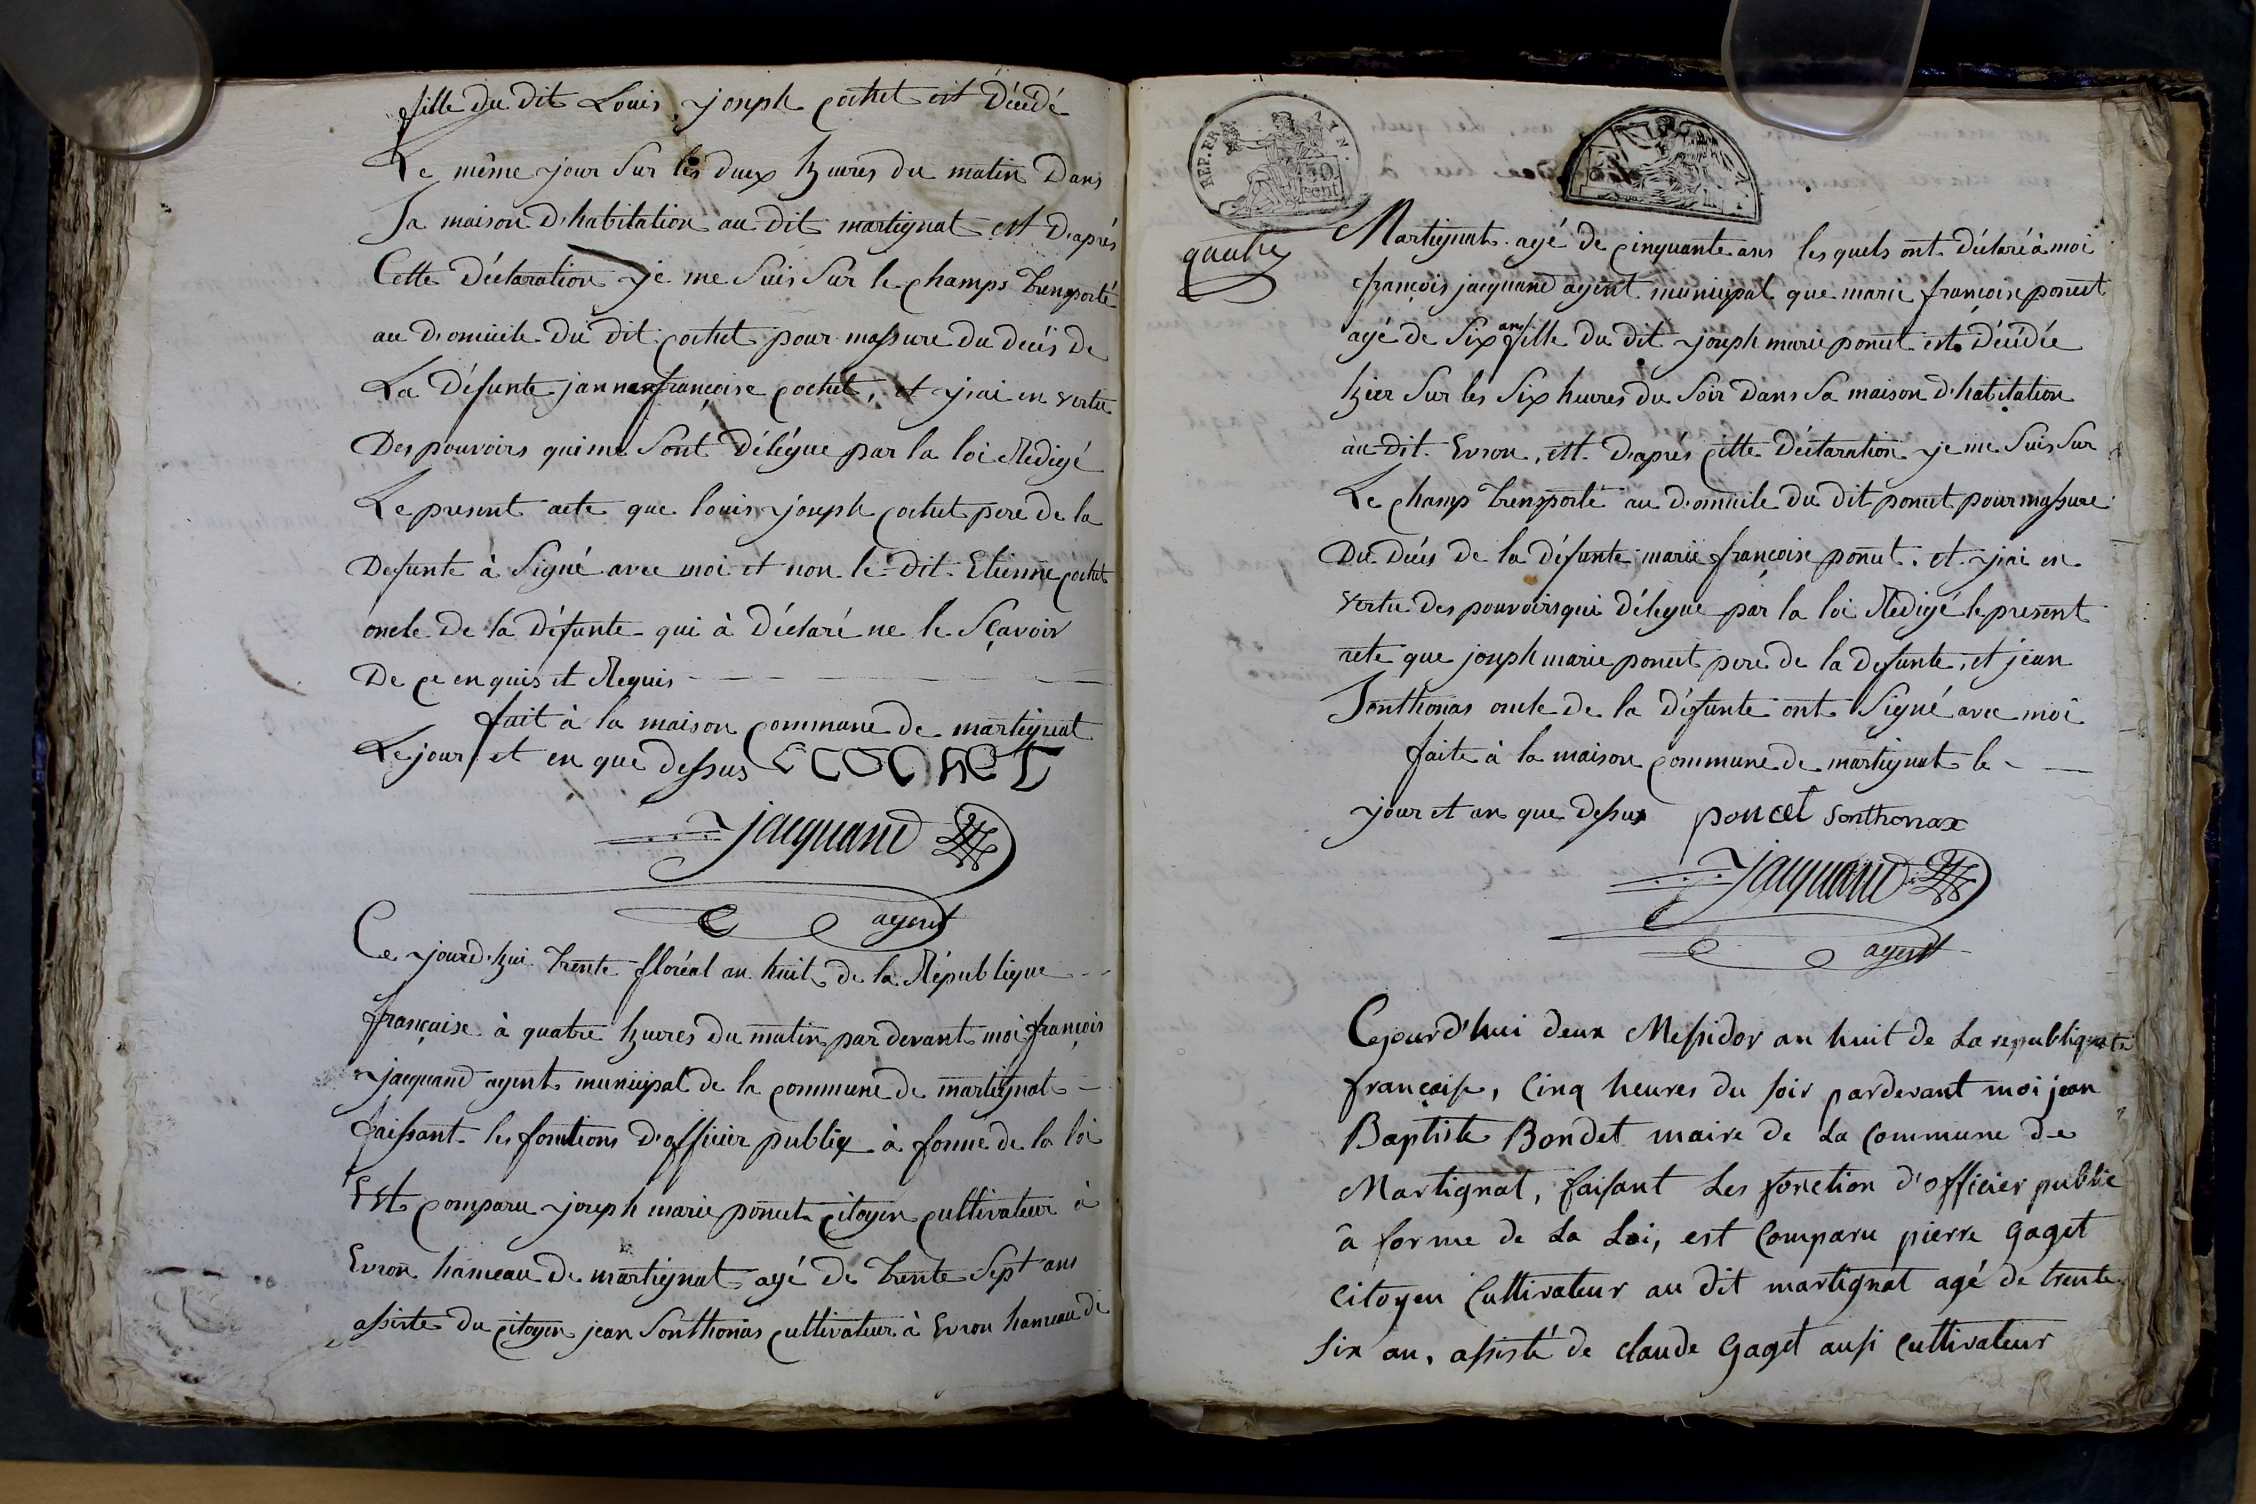 fille du dit Louis joseph cochet est Décédé
Le même jour Sur les deux hzeures du matin Dans
Sa maison D'habitation au dit martignat et D'après
Cette Déclaration je me Suis Sur le champs trensporté
au Domicile du dit cochet pour massure du décès de
La Défunte janne françoise cochet, et j'ai en vertu
Des pouvoirs qui me Sont Délégue par la loi Rédigé
Le present acte que louis joseph cochet pere de la
Defunte à Signé avec moi et non le dit Etienne cochet
oncle de la Défunte qui à Déclaré ne le Sçavoir
De ce enquis et Requis
fait à la maison commune de martignat
Le jour et en que dessus COCHET
jacquand
agent
Ce jourd'hui trente floréal an huit de la République
française à quatre hzeures du matin par devant moi françois
jacquand agent municipal de la commune de martignat
faissant les fonctions D'officier publiq à forme de la loi
Est comparu joseph marie poncet citoyen cultivateur à
Evron hameau de martignat agé de trente Sept ans
assiste du citoyen jean Sonthonas cultivateur à Evron hameau de
REP. FRA
50
cent
Martignat agé de cinquante ans les quels ont déclaré à moi
françois jacquand agent municipal que marie francoise poncet
agé de Six ans fille du dit joseph marie poncet est Décédée
hzier Sur les Six heures du Soir Dans Sa maison d'habitation
au dit Evron, et D'après cette Déclaration je me Suis Sur
Le champ trensporté au Domicile du dit poncet pour massure
Du décés de la défunte marie françoise poncet, et j'ai en
vertu des pouvoirs qui délégue par la loi Rédigé le present
acte que joseph marie poncet pere de la defunte, et jean
Sonthonas oncle de la défunte ont Signé avec moi
faite à la maison commune de martignat le
jour et an que dessus poncet Sonthonax
jacquand
agent
Cejourd'hui deux Messidor an huit de La republique
française, Cinq heures du soir pardevant moi jean
Baptiste Bondet maire de La Commune de
Martignat, faisant Les fonction d'officier public
à forme de La Loi, est Comparu pierre Gaget
Citoyen Cultivateur au dit martignat agé de trente
Six an, assisté de claude Gaget aussi Cultivateur